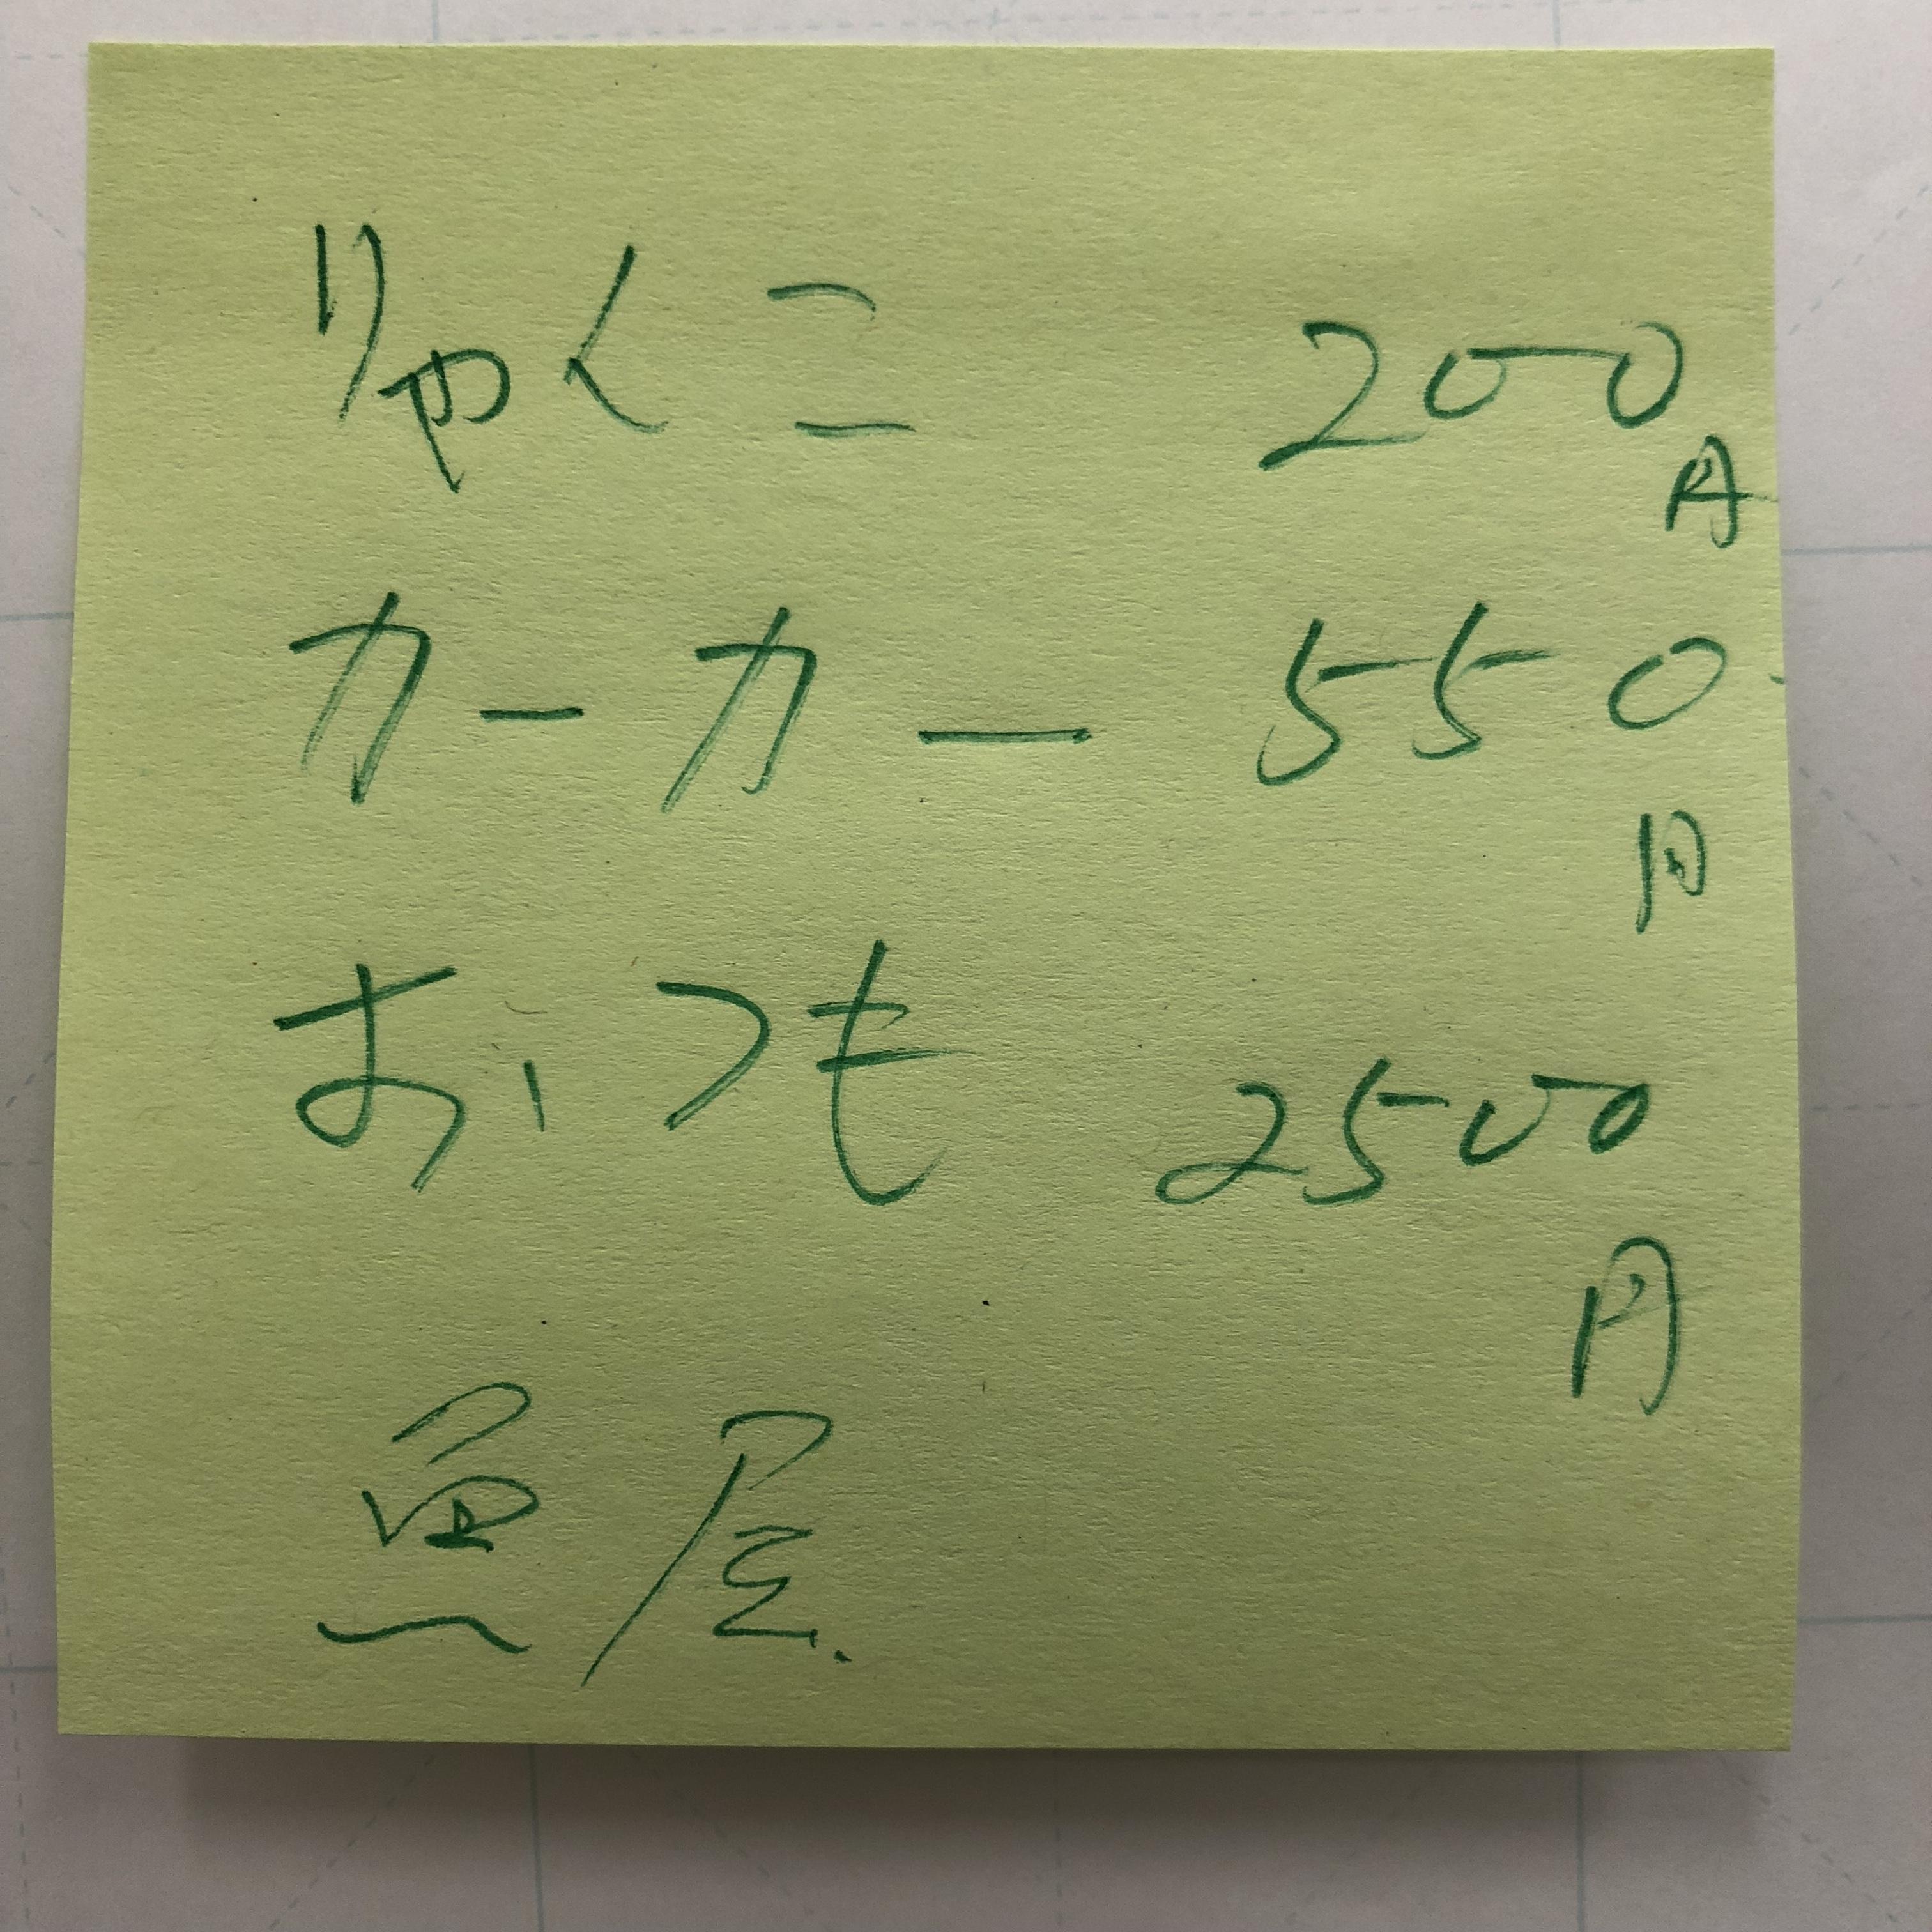 りゃくこ 200円
カーカー 550円
おいつも 2500円
魚屋